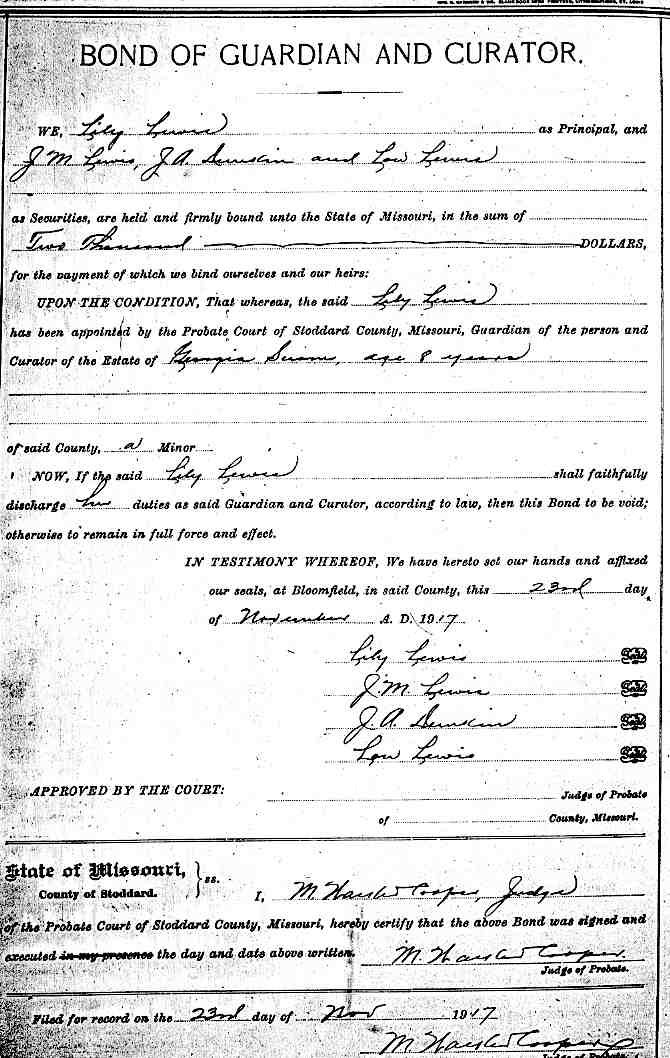 BOND OF GUARDIAN AND CURATOR.
WE, Lily Lewis as Principal, and
J M Lewis, J. A. Dunkin and Low Lewis
as Securities, are held and firmly bound unto the State of Missouri, in the sum of
Two Thousand DOLLARS,
for the payment of which we bind ourselves and our heirs:
UPON THE CONDITION, That whereas, the said Lily Lewis
has been appointed by the Probate Court of Stoddard County, Missouri, Guardian of the person and
Curator of the Estate of Georgia age 8 years
of said County, a Minor
NOW, If the said Lily Lewis shall faithfully
discharge her duties as said Guardian and Curator, according to law, then this Bond to be void;
otherwise to remain in full force and effect.
IN TESTIMONY WHEREOF, We have hereto set our hands and affixed
our seals, at Bloomfield, in said County, this 23rd day
of November A. D. 1917
Lily Lewis Seal
J. M. Lewis Seal
J. A. Dunkin Seal
Low Lewis Seal
APPROVED BY THE COURT:
Judge of Probate
of County, Missouri.
State of Missouri,
County of Stoddard. } ss.
I, M. Cooper, Judge
of the Probate Court of Stoddard County, Missouri, hereby certify that the above Bond was signed and
executed in my presence the day and date above written.
M. Cooper.
Judge of Probate.
Filed for record on the 23rd day of Nov 1917
M. Cooper